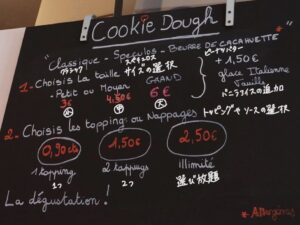 Cookie Dough
"Classique - Speculos - Beurre de cacahuète"
クラシック スペキュロス ピーナッツバター
1- Choisis la taille サイズの選択
- Petit ou Moyen GRAND
3€ 4.50€ 6€
小 中 大
+ 1,50€
glace Italienne
Vanille
バニラアイスの追加
2- Choisis les toppings ou Nappages トッピングやソースの選択
0,90cts 1,50€ 2,50€
1 topping 2 toppings illimité
1つ 2つ 選び放題
La dégustation !
* Allergènes